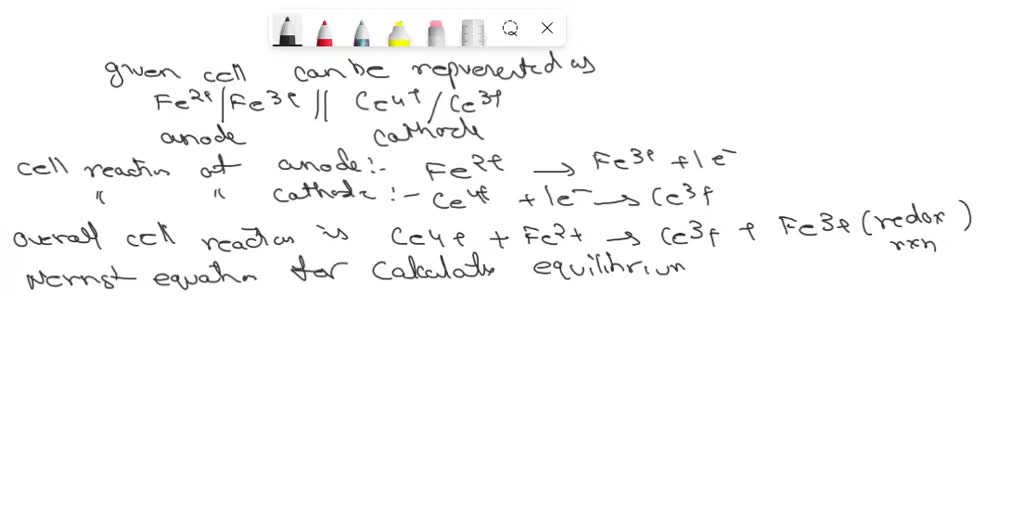 given cell can be represented as
Fe2+/Fe3+ || Ce4+/Ce3+
anode cathode
cell reaction at anode :- Fe2+ → Fe3+ + 1e-
" " cathode :- Ce4+ + 1e- → Ce3+
overall cell reaction is Ce4+ + Fe2+ → Ce3+ + Fe3+ (redox rxn)
Nernst equation for calculate equilibrium